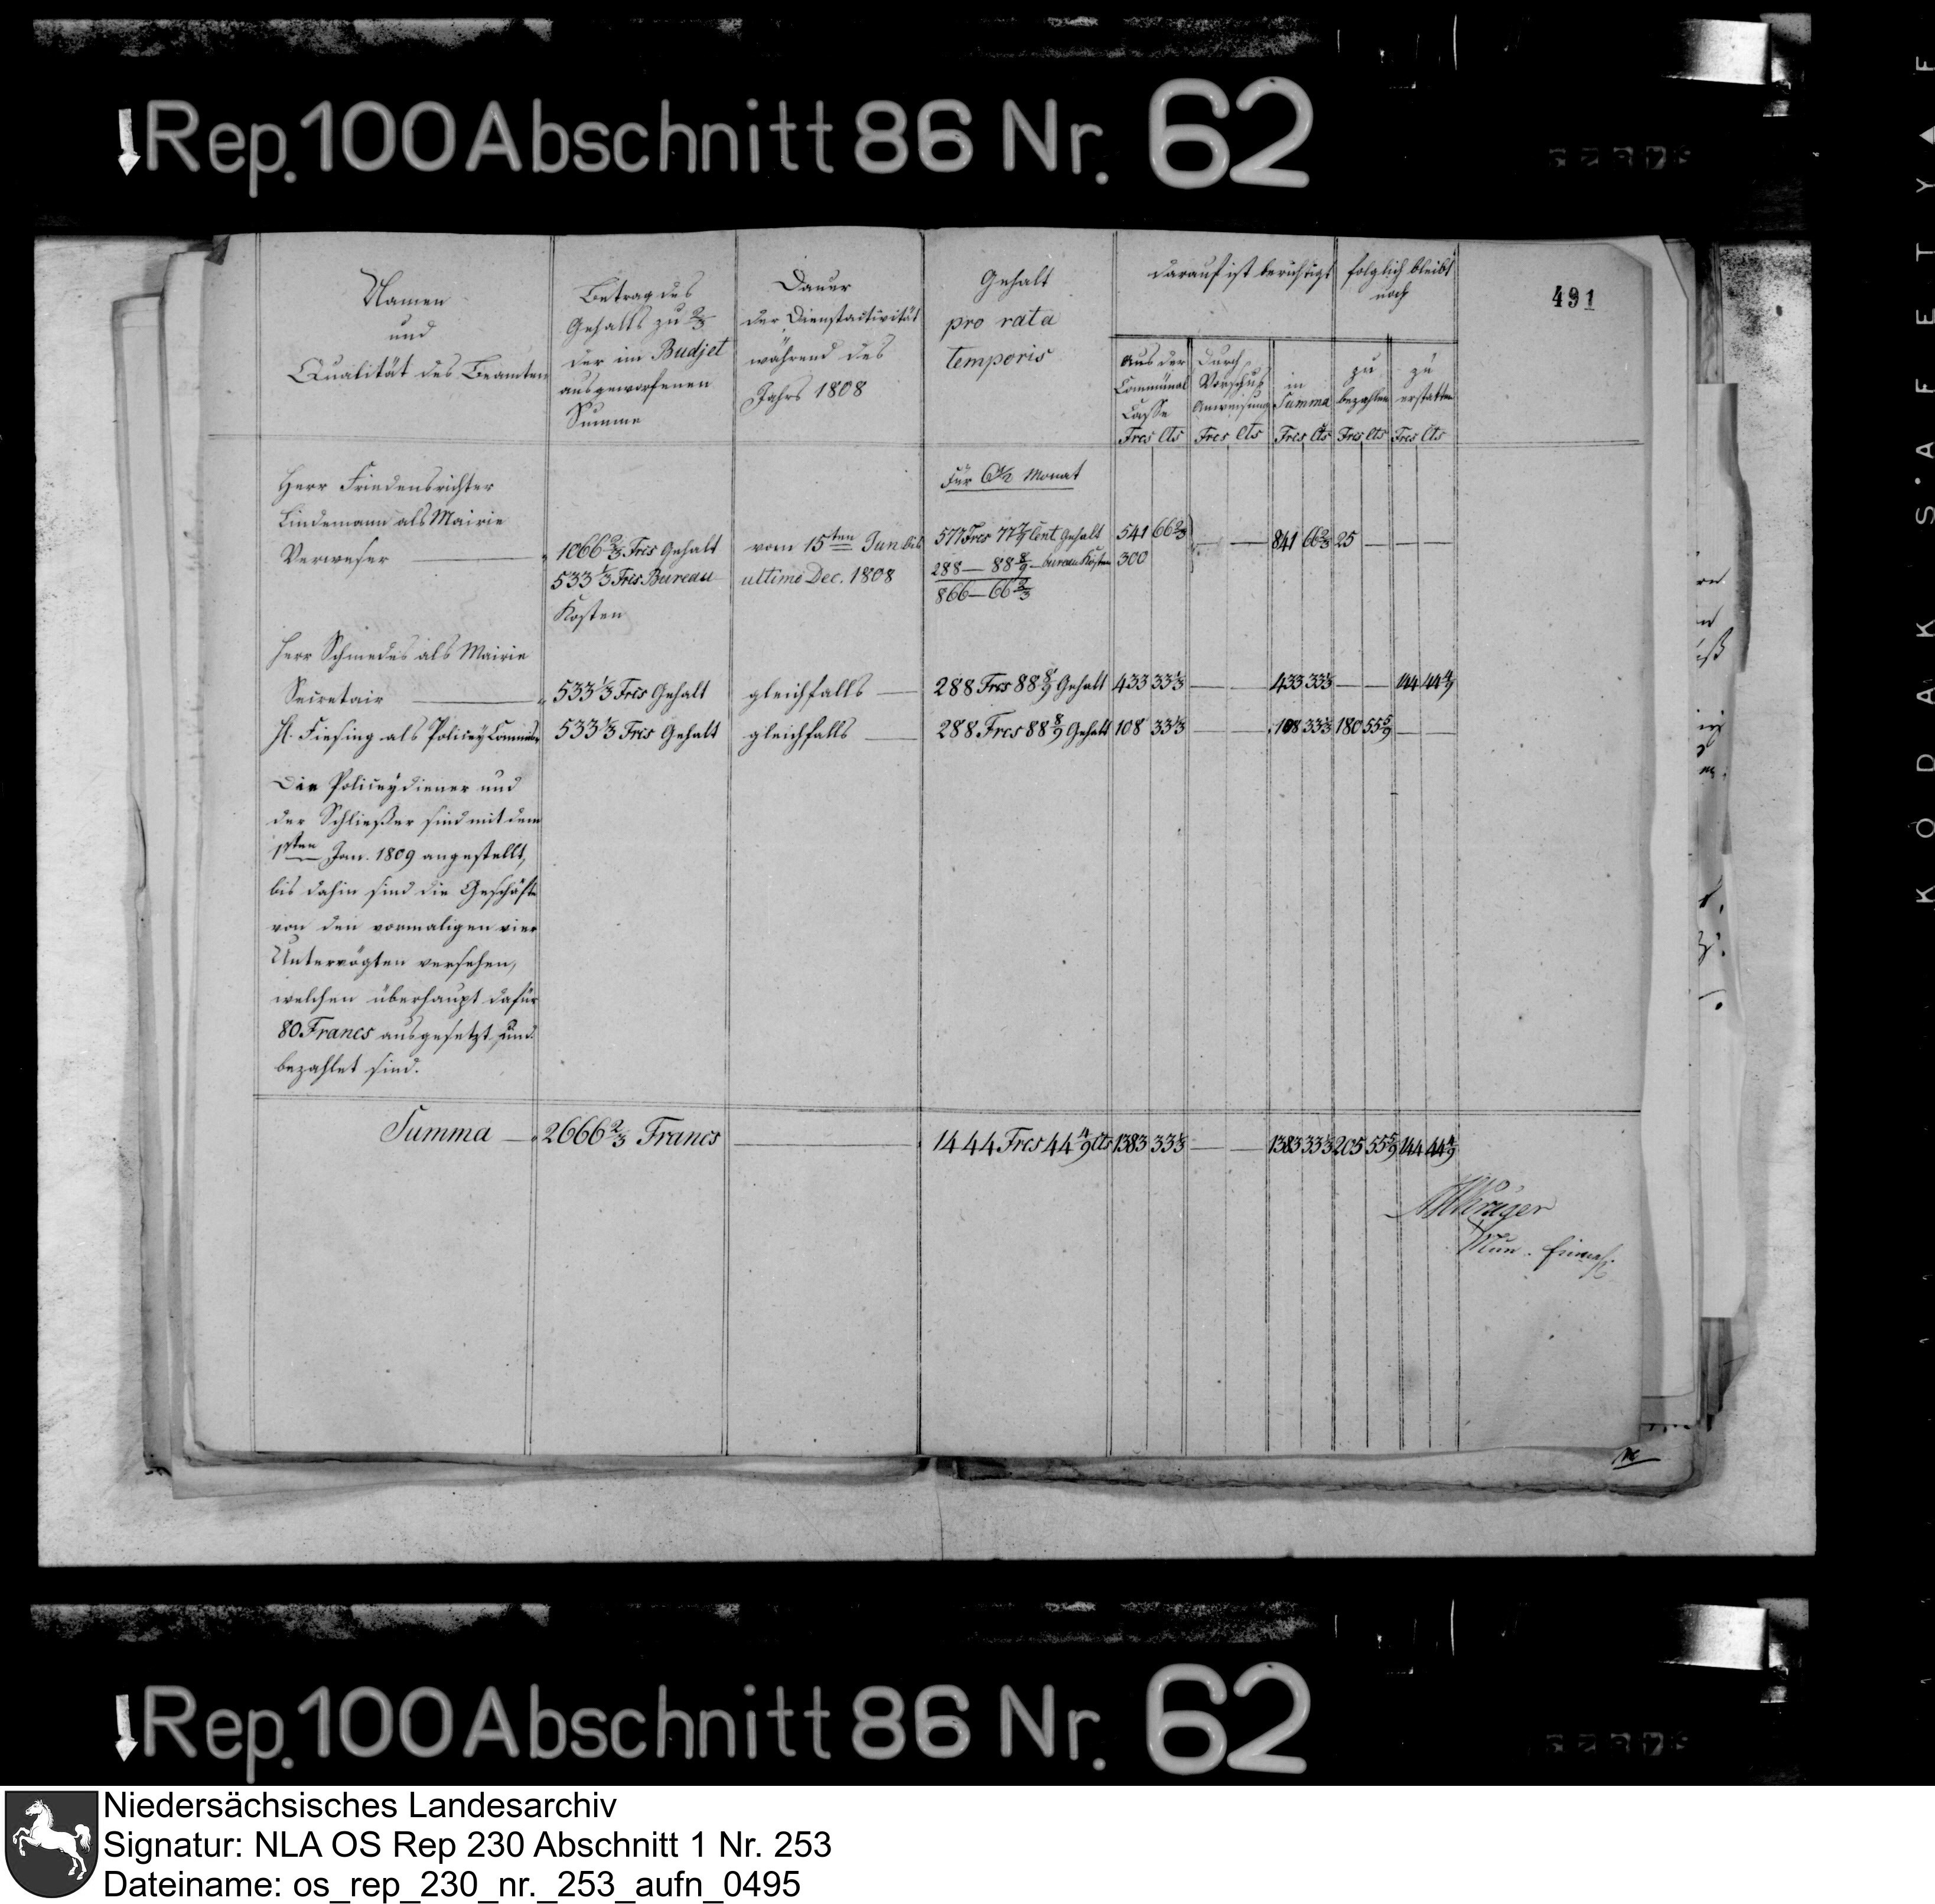 Rep. 100 Abschnitt 86 Nr. 62
491
Namen
und
Qualität des Beamten
Betrag des
Gehalts zu 2/3
der im Budjet
ausgeworfenen
Summe
Dauer
der Dienstactivität
während des
Jahrs 1808
Gehalt
pro rata
temporis
darauf ist berichtigt
folglich bleibt
noch
Aus der
Communal
Casse
Frcs Cts
Durch
Vorschuß
Anweisung
Frcs Cts
in
Summa
Frcs Cts
zu
bezahlen
Frcs Cts
zu
erstatten
Frcs Cts
Herr Friedensrichter
Lindemann als Mairie
Verweser
1066 2/3 Frcs Gehalt
533 1/3 Frcs Bureau
Kosten
vom 15ten Jun bis
ultimo Dec. 1808
Für 6 1/2 Monat
577 Frcs 77 7/9 Cent Gehalt
288 — 88 8/9 — bureau Kosten
866 — 66 2/3
541 66 2/3 — — 841 66 2/3 25 — — —
300
Herr Schmedes als Mairie
Secretair — 533 1/3 Frcs Gehalt gleichfalls — 288 Frcs 88 8/9 Gehalt 433 33 1/3 — — 433 33 1/3 — — 144 44 4/9
H. Fiesing als Policey Commiss. 533 1/3 Frcs Gehalt gleichfalls — 288 Frcs 88 8/9 Gehalt 108 33 1/3 — — 108 33 1/3 180 55 5/9 — —
Die Policeydiener und
der Schließer sind mit dem
1sten Jan. 1809 angestellt,
bis dahin sind die Geschäfte
von den vormaligen vier
Untervögten versehen,
welchen überhaupt dafür
80 Francs ausgesetzt und
bezahlet sind.
Summa — 2666 2/3 Francs — 1444 Frcs 44 4/9 Cts 1383 33 1/3 — — 1383 33 1/3 205 55 5/9 144 44 4/9
Krüger
Mun.
Rep. 100 Abschnitt 86 Nr. 62
KODAK S·AFETY
Niedersächsisches Landesarchiv
Signatur: NLA OS Rep 230 Abschnitt 1 Nr. 253
Dateiname: os_rep_230_nr._253_aufn_0495